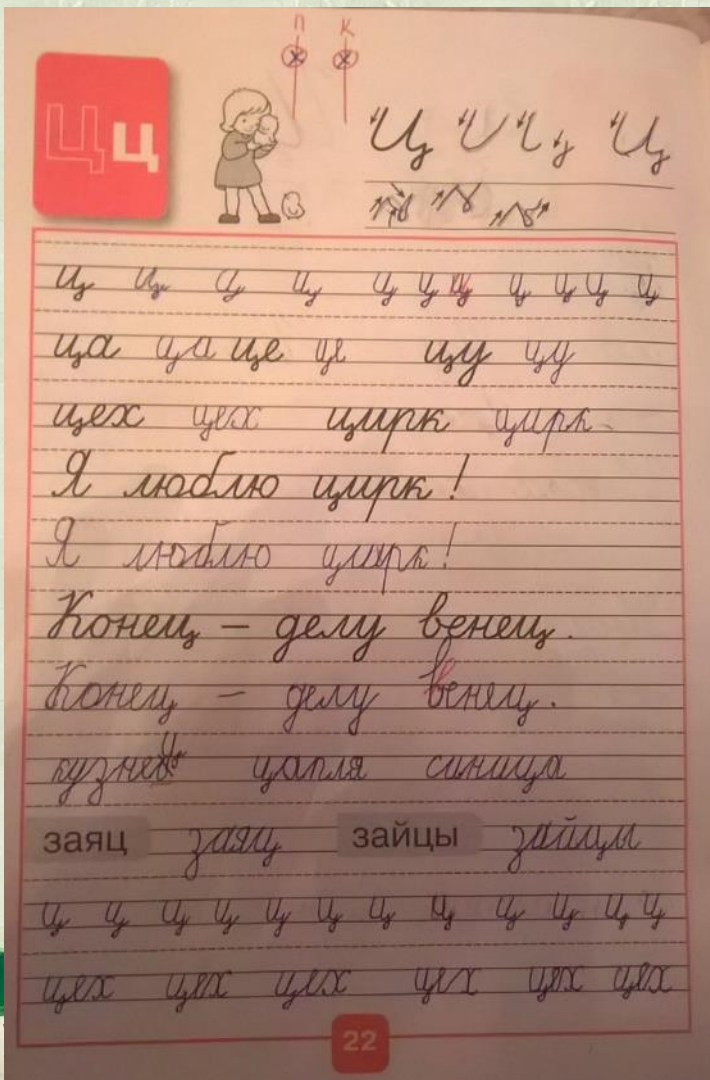 П К
Цц
Ц Ц
ц ц ц ц ц ц ц ц ц ц ц
ца ца це це цу цу
цех цех цирк цирк
Я люблю цирк!
Я люблю цирк!
Конец – делу венец.
Конец – делу венец.
кузнец цапля синица
заяц заяц зайцы зайцы
ц ц ц ц ц ц ц ц ц ц ц ц
цех цех цех цех цех цех
22